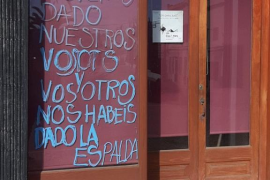 DADO
NUESTROS
VOSOTS
Y
VOSOTROS
NOS HABEIS
DADO LA
ESPALDA